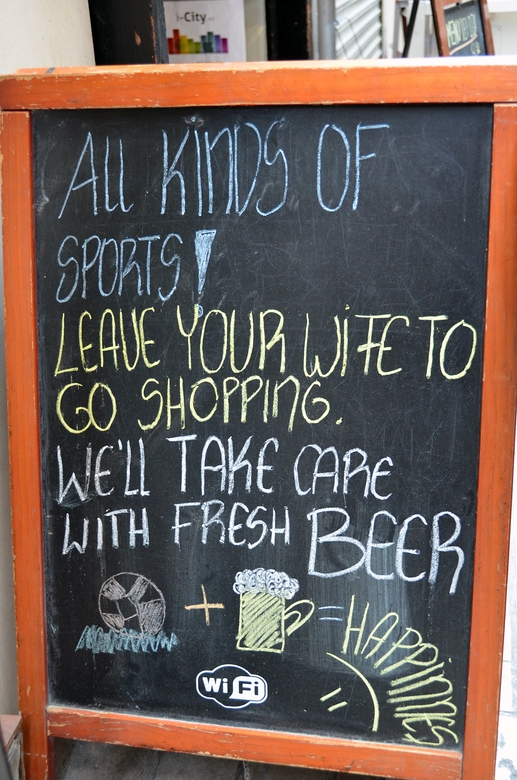 i-City
ALL KINDS OF
SPORTS!
LEAVE YOUR WiFE TO
GO SHOPPING.
WE'LL TAKE CARE
WITH FRESH BEER
+ = HAPPiNNES
Wi Fi